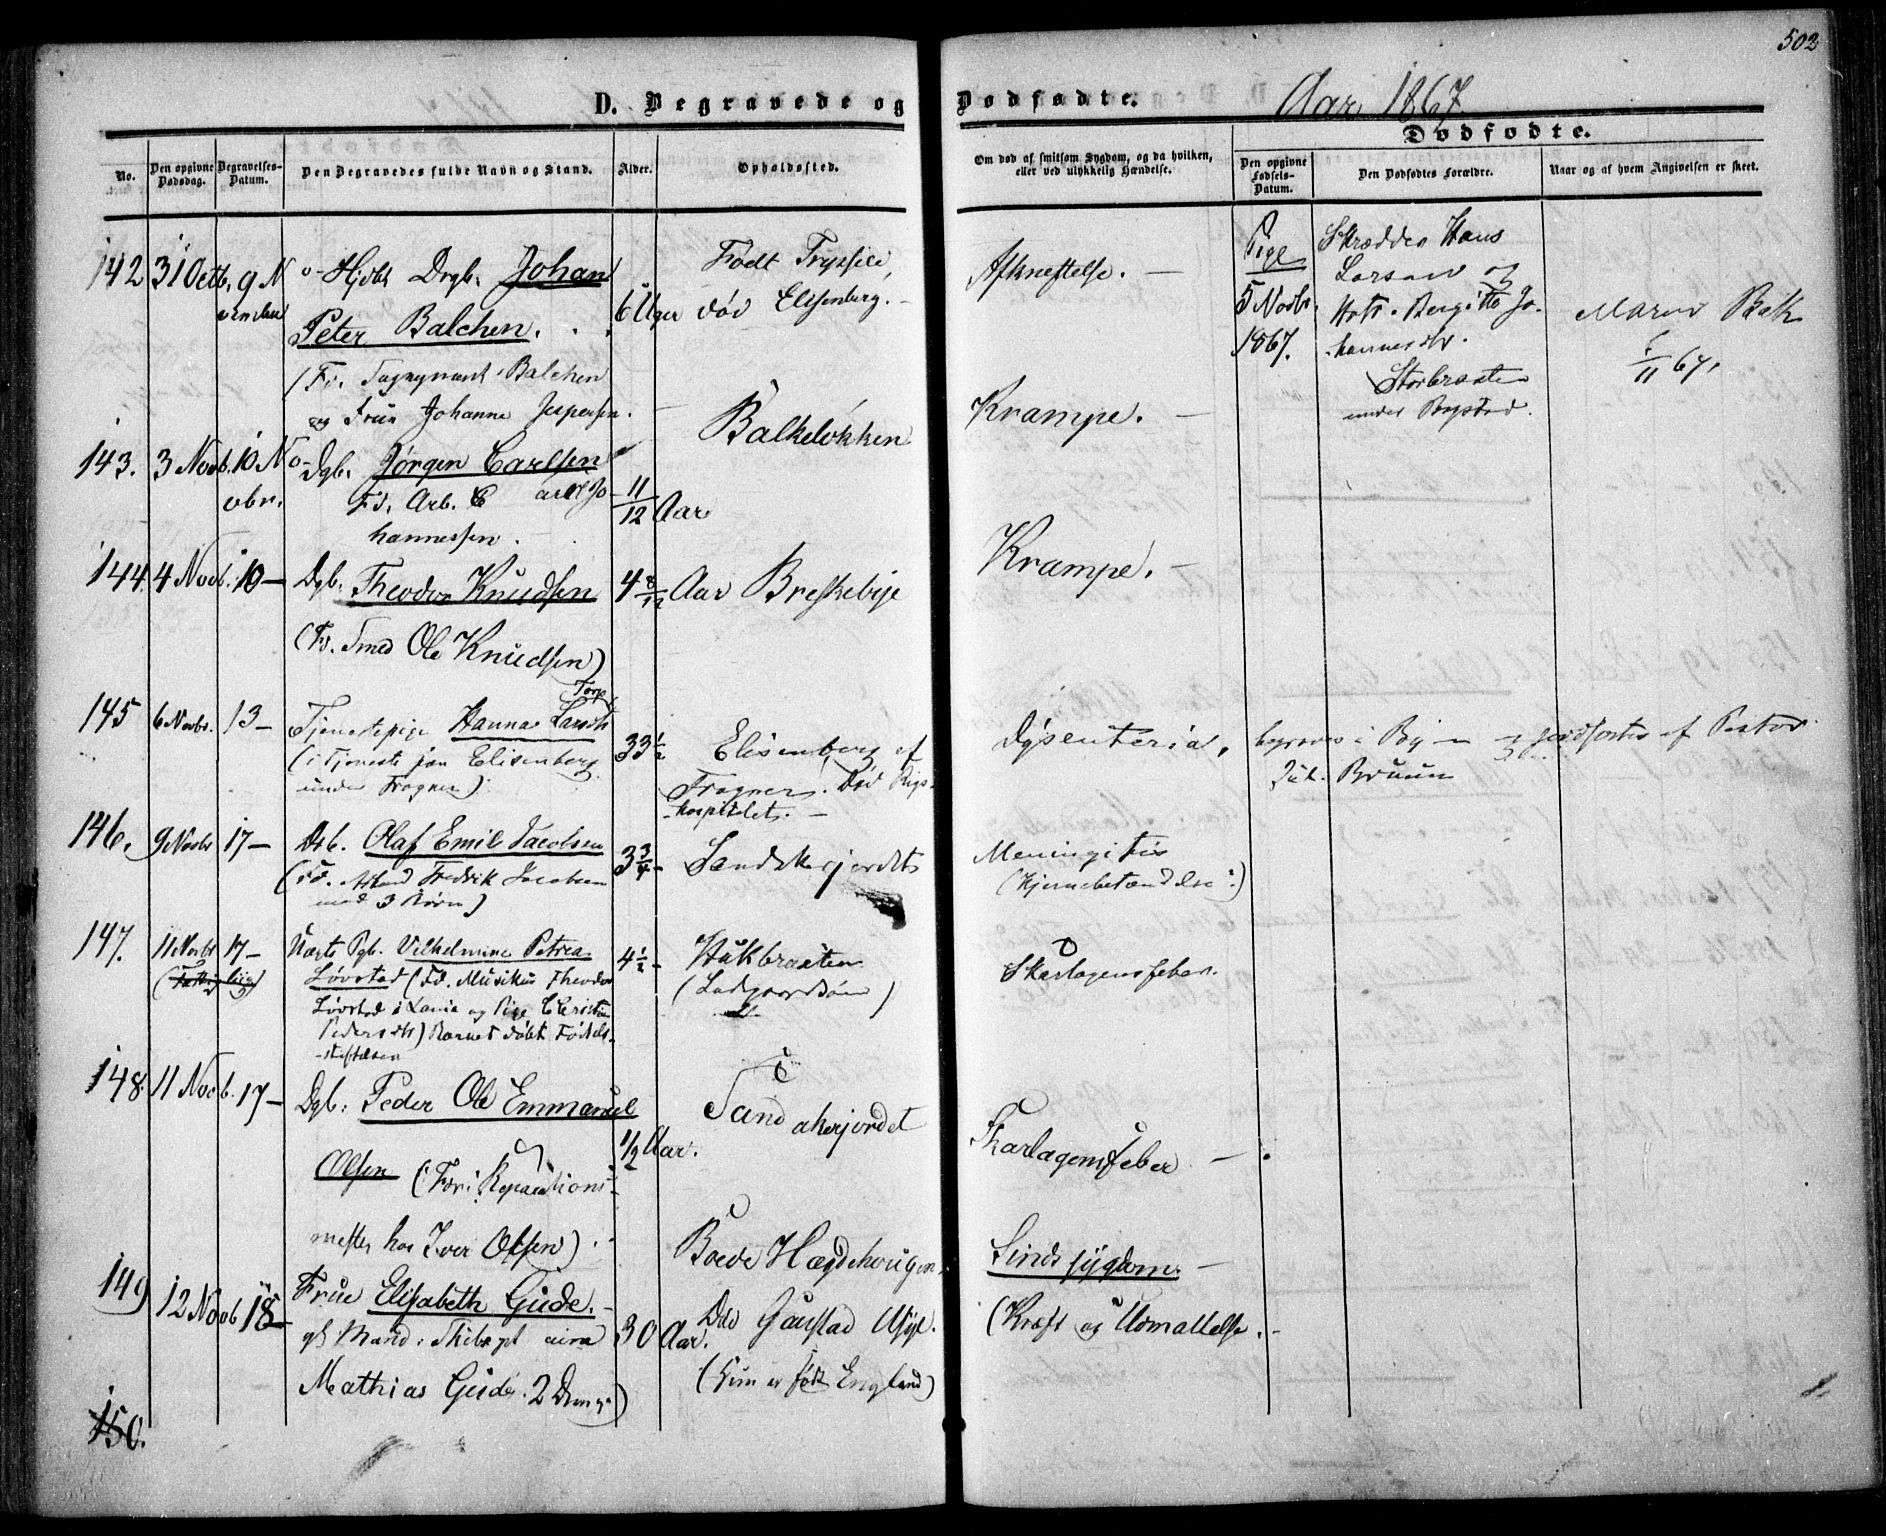 502
D. Begravede og Dødfødte. Aar 1867
Dødfødte.
No.
Den opgivne Dødsdag.
Begravelses-Datum.
Den Begravedes fulde Navn og Stand.
Alder.
Opholdssted.
Om død af smitsom Sygdom, og da hvilken, eller ved ulykkelig Hændelse.
Den opgivne Fødsels-Datum.
Den Dødfødtes Forældre.
Naar og af hvem Angivelsen er skeet.
142 31 Octb. 9 Novbr. Johan
Peter Balchen.
(Fd. Balchen
og Frue Johanne Jespersen.
6 Uger
Født Trysild,
død Elisenberg.
Afkræftelse. —
Pige
5 Novbr.
1867.
Skrædder Hans
Larsen og
Hstr. Bergitte Jo-
hannesdtr.
Storbraaten
under Bygdø.
Maren Bak
/11 67.
143. 3 Novb. 10 No-
vbr.
Dgb. Jørgen Carlsen
Fd. Arb. Carl Jo-
hannessen.
11/12 Aar
Balkeløkken
Krampe. —
144. 4 Novb. 10 —
Dgb. Theodor Knudsen
(Fd. Smed Ole Knudsen)
4 8/12 Aar
Breskebye
Krampe. —
145 6 Novbr. 13 —
Tjenestepige Hanna Larsdtr Torp
(i Tjeneste paa Elisenberg
under Frogner)
33 1/2
Elisenberg af
Frogner. Død Rigs-
hospitalet. —
Dysenteria.
begraves i Byen jordfæstes af Pastor
Jul. Bruun
146. 9 Novbr 17 —
Dsb. Olaf Emil Jacobsen
(Fd. Fredrik Jacobsen
med 3 Børn)
3 3/4 —
Sandakerjordet
Meningitis
(Hjernebetændelse)
147. 11 Novbr 17 —
Uægte Pgb. Vilhelmine Petrea
Løvstad (Fd. Musikus Theodor
Løvstad og Pige Christine
Pedersdtr) Barnet døbt Fødsels-
stiftelsen
4 1/2 —
Hukbraaten
Skarlagensfeber.
148. 11 Novb. 17 —
Dgb. Peder Ole Emmanuel
Olsen (For: Reparations-
mester Iver Olsen)
1/2 Aar.
Sandakerjordet
Skarlagensfeber —
149 12 Novb 18 —
Frue Elisabeth Gude.
gl Mand: Skibscapt
Mathias Gude. 2 Drenge)
30 Aar.
Boede Hægdehougen,
Død Gaustad Asyl.
(Hun er født England)
Sindssygdom. —
(Kræft og Udmattelse.
150.